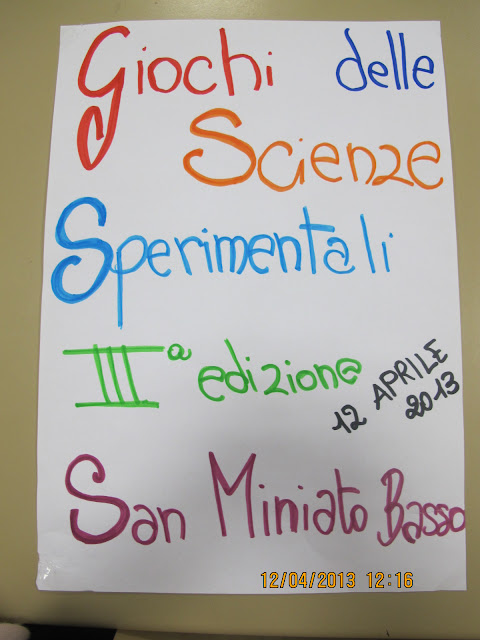 Giochi delle
Scienze
Sperimentali
IIIª edizione
12 APRILE
2013
San Miniato Basso
12/04/2013 12:16